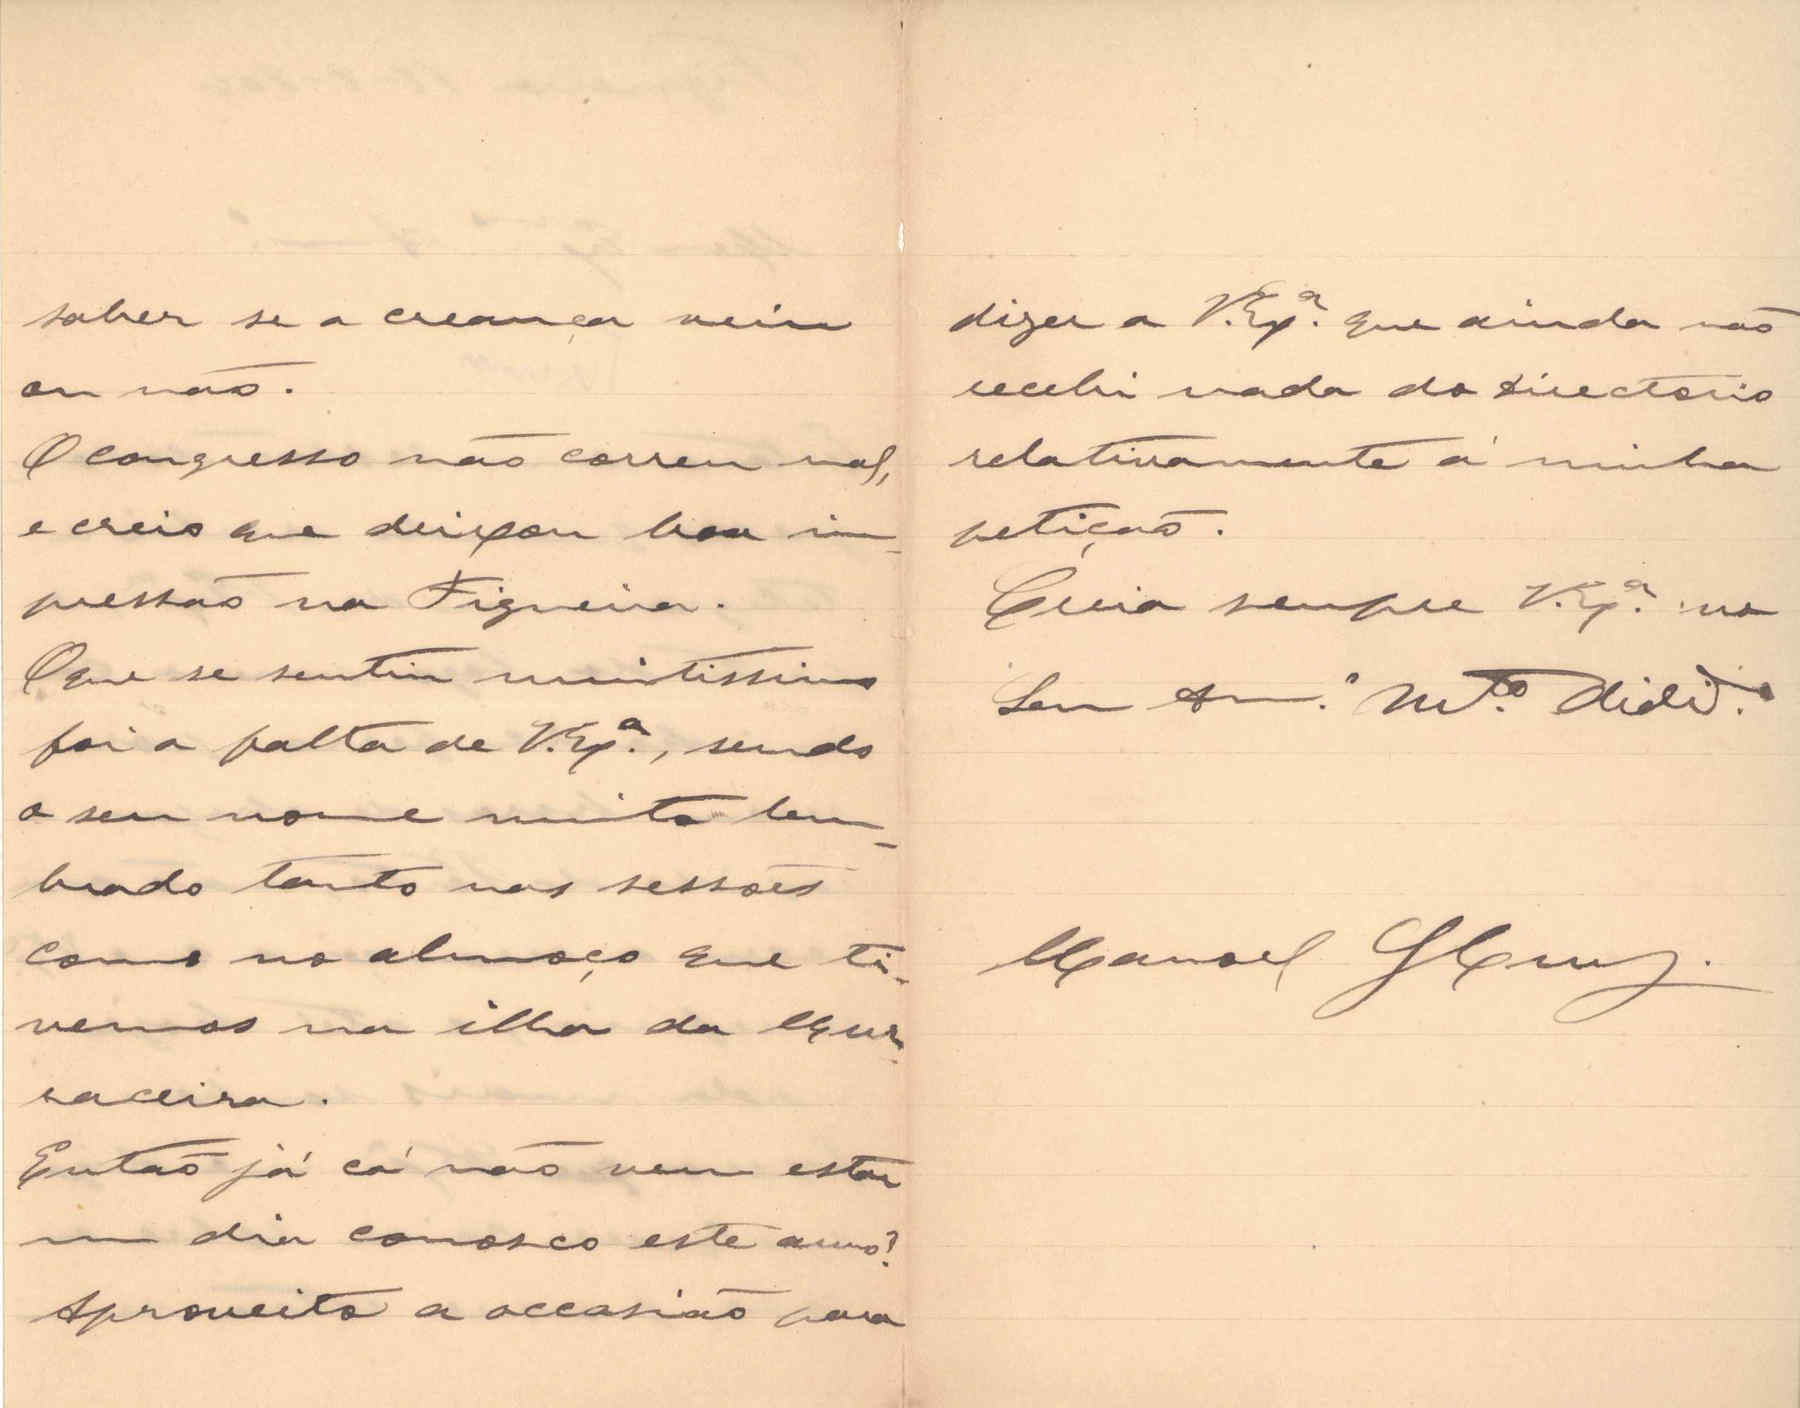 saber se a creança veiu
ou não.
O congresso não correu mal,
e creio que deixou boa im-
pressão na Figueira.
O que se sentiu muitissimo
foi a falta de V. Ex.ª, sendo
o seu nome muito lem-
brado tanto nas sessões
como no almoço que ti-
vemos na ilha da Mur-
raceira.
Então já cá não vem estar
um dia conosco este anno?
Aproveito a occasião para
dizer a V. Ex.ª que ainda não
recebi nada do Directorio
relativamente á minha
petição.
Creia sempre V. Ex.ª no
Seu Am.º M.to
Manoel Cruz.